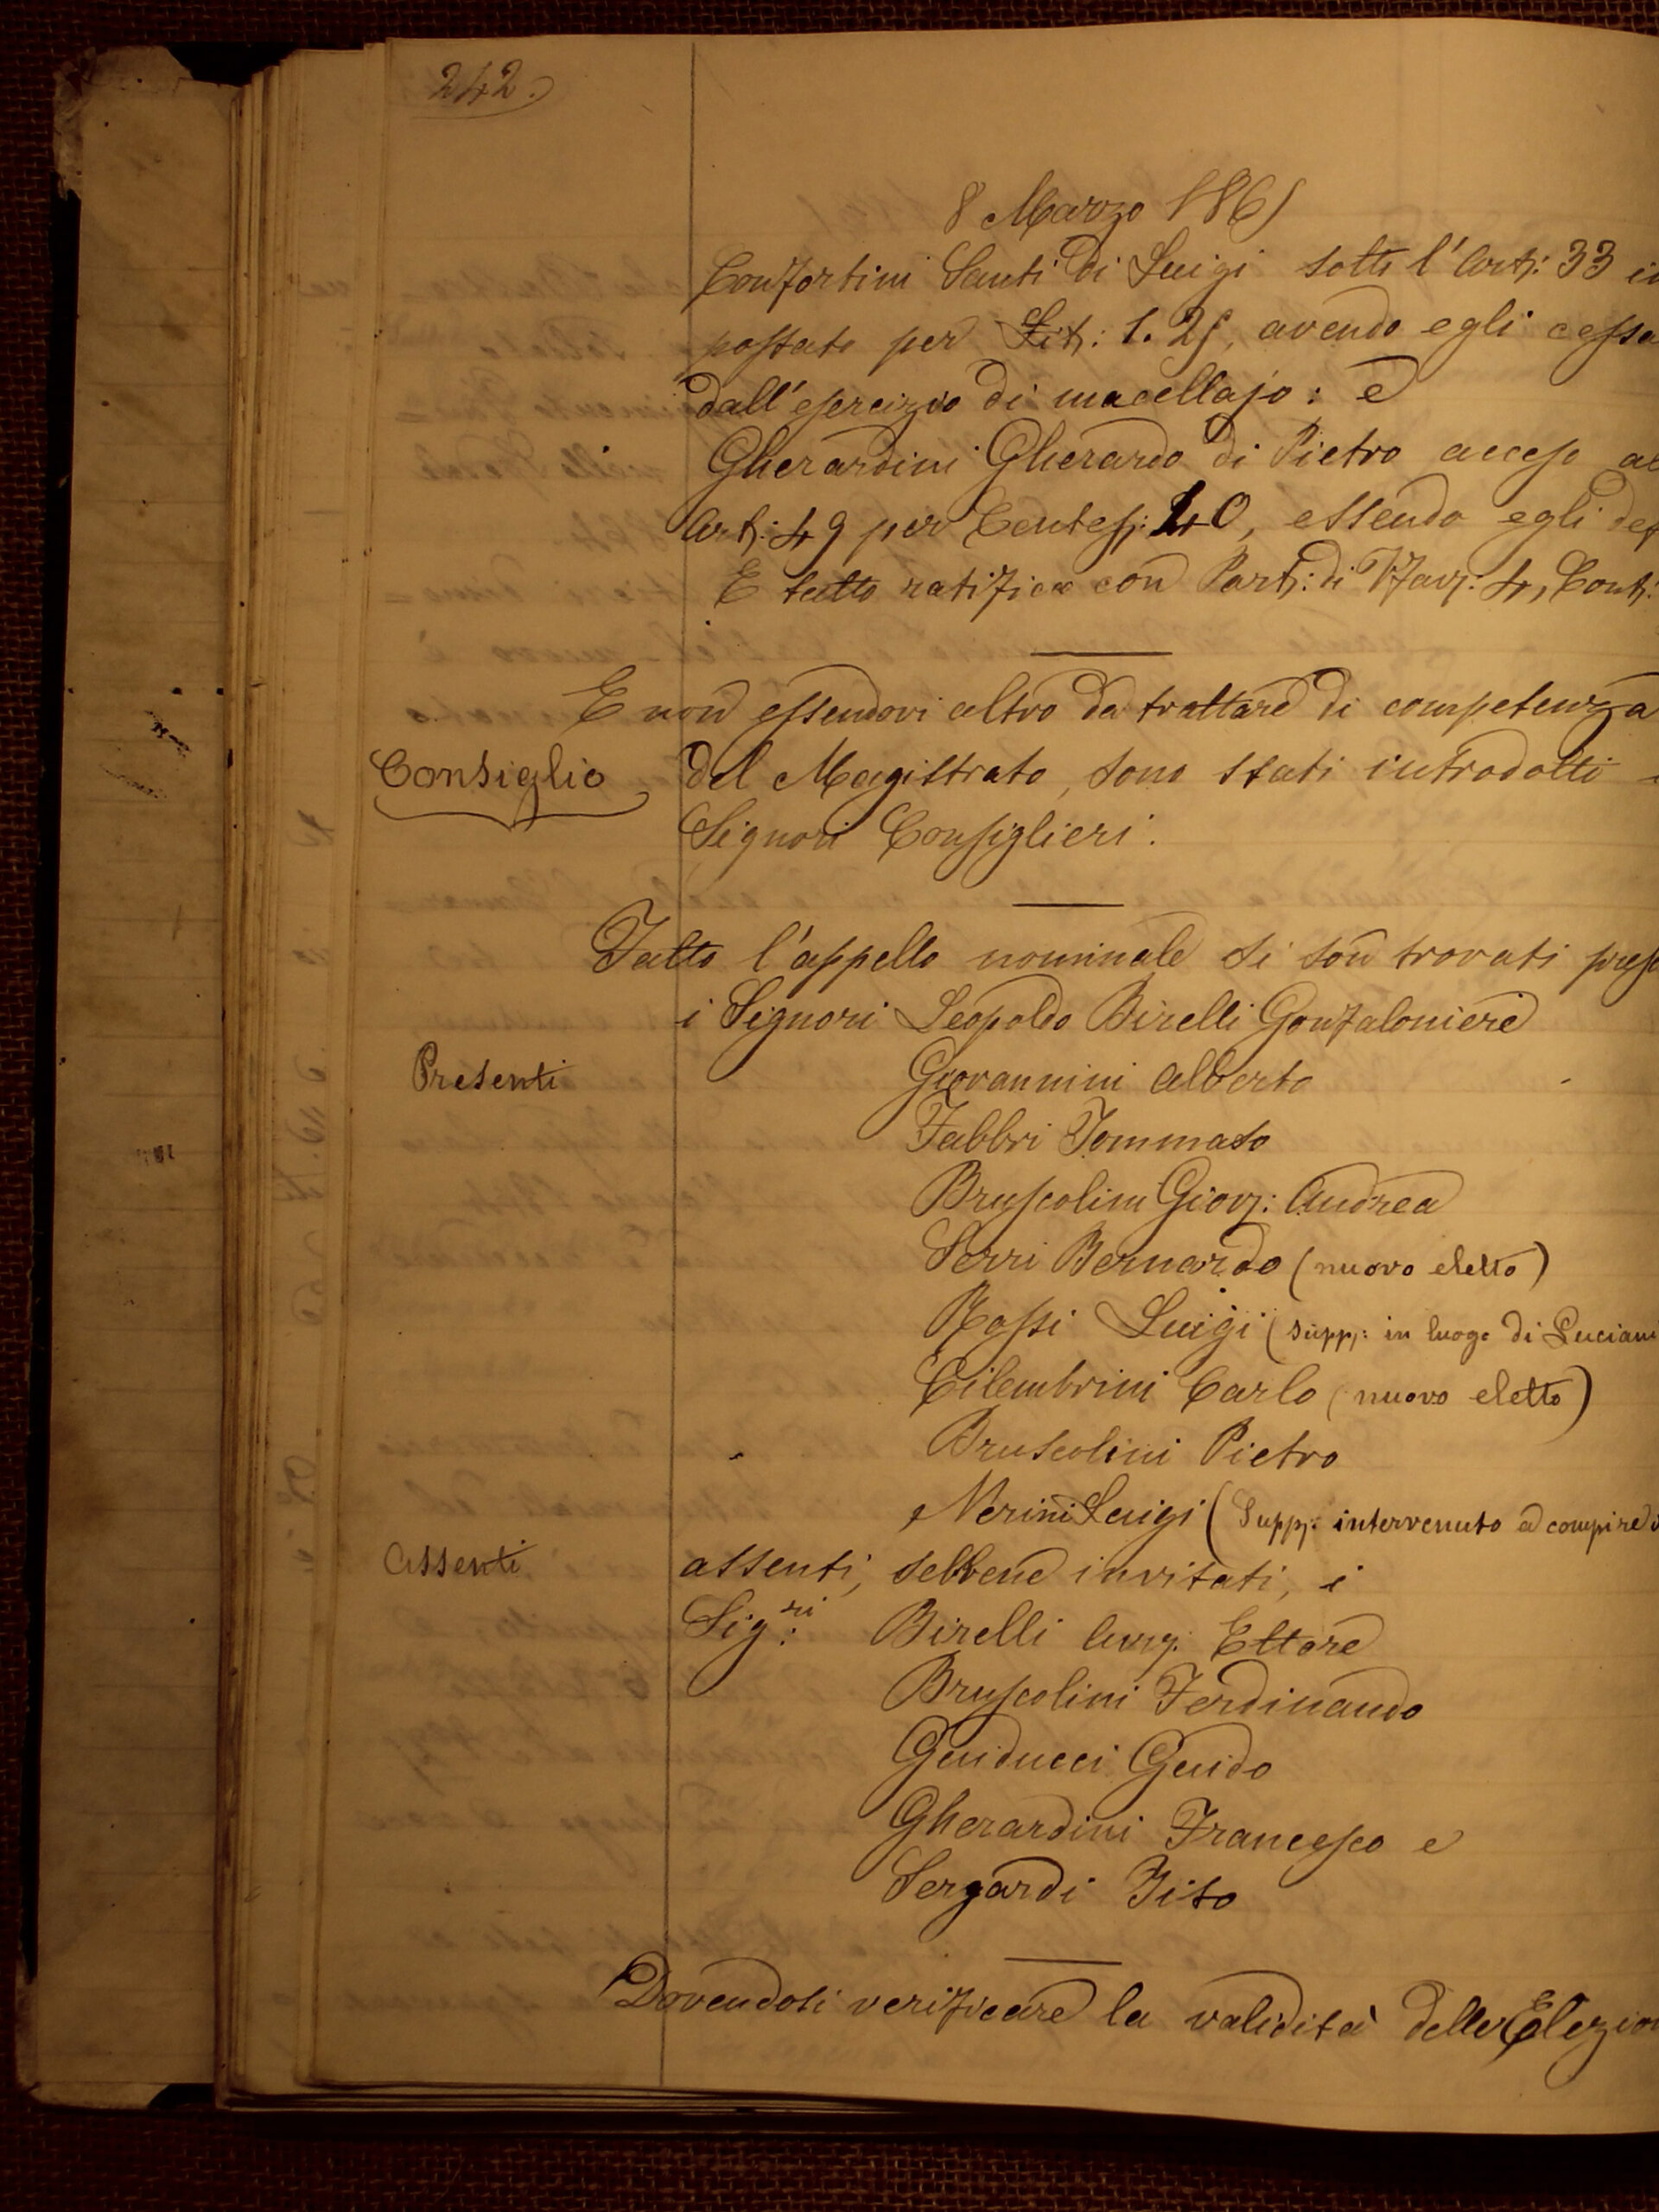 242.
8 Marzo 1861
Confortini Santi di Luigi sotto l'Art: 33 im
postato per Lit: 1. 25, avendo egli cessa
dall'esercizio di macellajo: e
Gherardini Gherardo di Pietro acceso
Art: 49 per Centes: 40, essendo egli def
E tutto ratifica con Part: di Fav: 4, Cont:
E non essendovi altro da trattare di competenza
Consiglio
del Magistrato, sono stati introdotti
Signori Consiglieri.
Fatto l'appello nominale si son trovati prese
i Signori Leopoldo Birelli Gonfaloniere
Presenti
Giovannini Alberto
Fabbri Tommaso
Bruscolini Giov: Andrea
Serri Bernardo (nuovo eletto)
Rossi Luigi (supp: in luogo di Luciani
Cilembrini Carlo (nuovo eletto)
Bruscolini Pietro
e Nerini Luigi (Supp: intervenuto a compire
Assenti
assenti, sebbene invitati, i
Sig:ri Birelli Ettore
Bruscolini Ferdinando
Guiducci Guido
Gherardini Francesco e
Sergardi Tito
Dovendosi verificare la validità delle Elezion